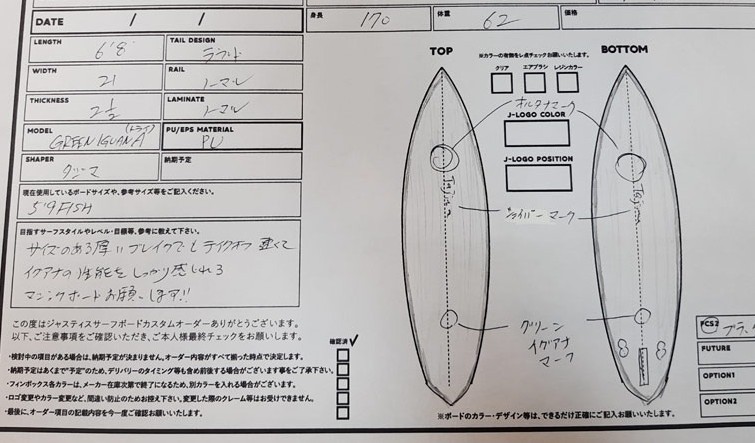 DATE / /
身長 170 体重 62 価格
LENGTH 6'8 TAIL DESIGN ラウンド
WIDTH 21 RAIL ノーマル
THICKNESS 2 1/2 LAMINATE ノーマル
MODEL GREEN IGUANA (トライ) PU/EPS MATERIAL PU
SHAPER 納期予定
現在使用しているボードサイズや、参考サイズ等をご記入ください。
5'9 FISH
目指すサーフスタイルやレベル・目標等、参考に教えて下さい。
サイズのある厚いブレイクでもテイクオフ速くて
イグアナの性能をしっかり感じれる
マジックボードお願いします!!
この度はジャスティスサーフボードカスタムオーダーありがとうございます。
以下、ご注意事項をご確認いただき、ご本人様最終チェックをお願いします。
確認済
・検討中の項目がある場合は、納期予定が決まりません。オーダー内容がすべて揃った時点で決定します。
・納期予定はあくまで"予定"のため、デリバリーのタイミング等も含め前後する場合がございます事をご了承下さい。
・フィンボックス各カラーは、メーカー在庫次第で終了になるため、別カラーを入れる場合がございます。
・ロゴ変更やカラー変更など、間違い防止のためお控え下さい。変更した際のクレーム等はお受けできません。
・最後に、オーダー項目の記載内容を今一度ご確認お願いいたします。
TOP
※カラーの有無をレ点チェックお願いいたします。
BOTTOM
クリア エアブラシ レジンカラー
オルタナマーク
J-LOGO COLOR
J-LOGO POSITION
Tajima
Tajima
シェイパーマーク
グリーン
イグアナ
マーク
※ボードのカラー・デザイン等は、できるだけ正確にご記入お願いいたします。
FCS2
FUTURE
OPTION1
OPTION2